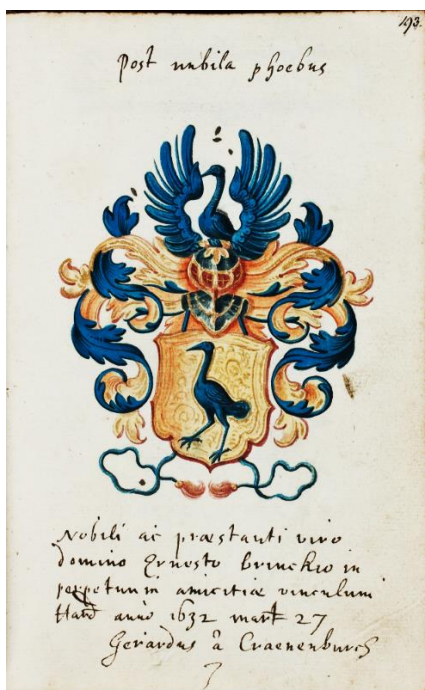 193.
Post nubila phoebus
Nobili ac præstanti viro
domino Ernesto Brinckio in
perpetuum amicitiæ vinculum
anno 1632 mart 27
Gerardus à Craenenburch